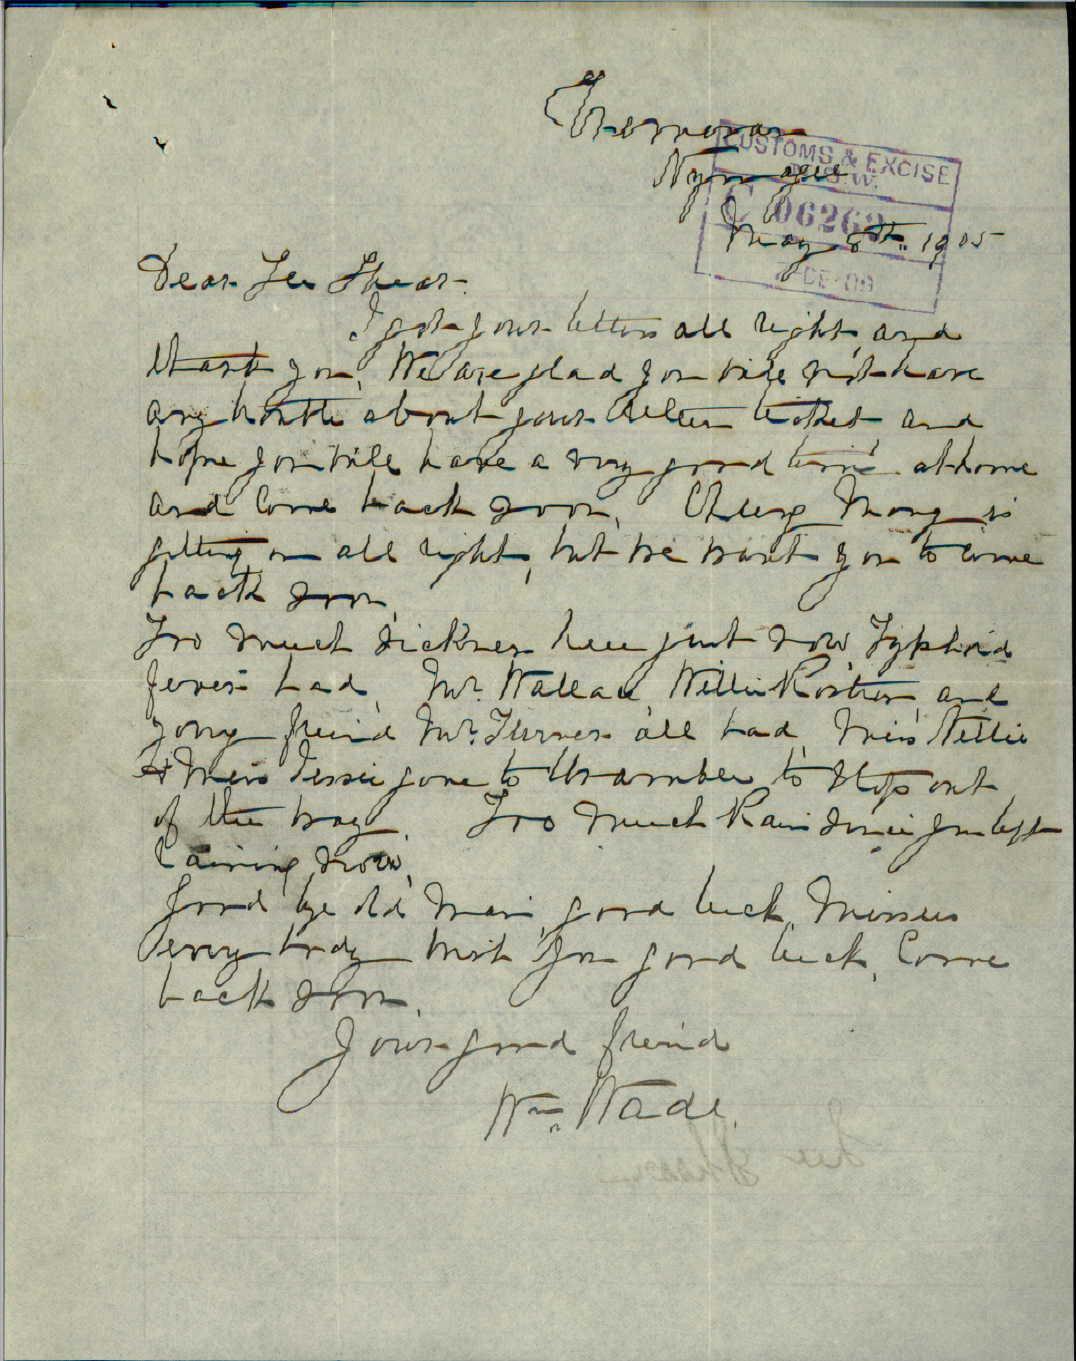 Nymagee
CUSTOMS & EXCISE
N.S.W.
C 06263
May 8th. 1905
Dear Lee Shear.
I got your letters all right, and
thank you, We are glad you will not have
any trouble about your Allen ticket and
hope you will have a very good time at home
and Come back soon, Mong is
getting on all right, but we want you to come
back soon,
Too much sickness here just now Typhoid
fever bad, Mr. Wallace, Willie and
yony freind Mr. Turner all bad, Miss Nellie
& Miss Jessie gone to to stop out
of the way. Too much Rain since you left
raining now,
Good bye old man, good luck, Missus
every body wish you good luck, Come
back soon,
Your good freind
Wm. Wade.
Lee Shear